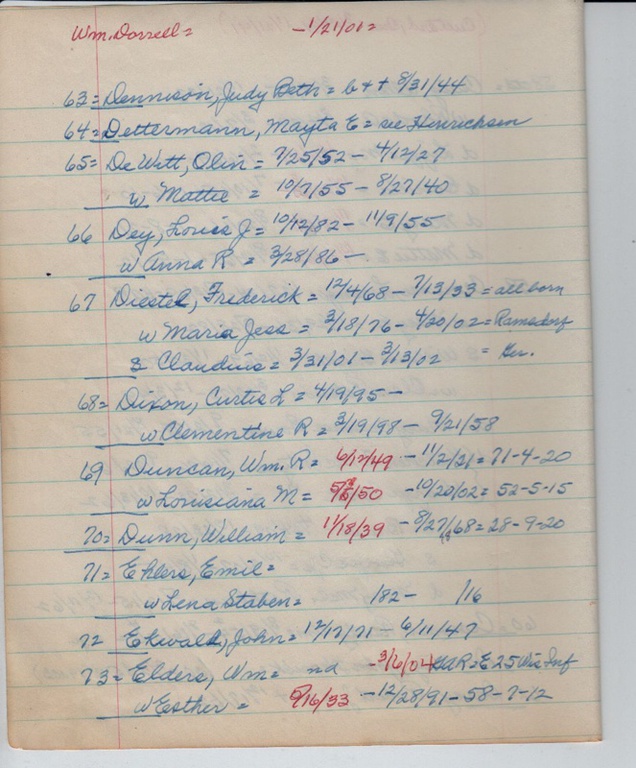 Wm. Dorrell = -1/21/01=
63= Dennison, Judy Beth = b + + 8/31/44
64= Dettermann, Mayta E = see Hinrichsen
65= DeWitt, Olin = 7/25/52 - 4/12/27
w Mattie = 10/7/55 - 8/27/40
66 Dey, Louis J = 10/12/82 - 11/9/55
w Anna R = 3/28/86 -
67 Diestel, Frederick = 12/4/68 - 7/13/33 = all born
w Maria Jess = 3/18/76 - 4/20/02 = Ramsdorf
s Claudius = 3/31/01 - 3/13/02 = Ger.
68= Dixon, Curtis L = 4/19/95 -
w Clementine R = 3/19/98 - 9/21/58
69 Duncan, Wm. R = 6/12/49 - 11/2/21 = 71-4-20
w Louisiana M = /50 - 10/20/02 = 52-5-15
70= Dunn, William = 11/18/39 - 8/27/68 = 28-9-20
71= Ehlers, Emil =
w Lena Staben = /82 - /16
72 Ekwall, John = 12/17/71 - 6/11/47
73= Elders, Wm = nd -3/6/04 GAR = E 25 Wis Inf
w Esther = 5/16/33 - 12/28/91 - 58-7-12